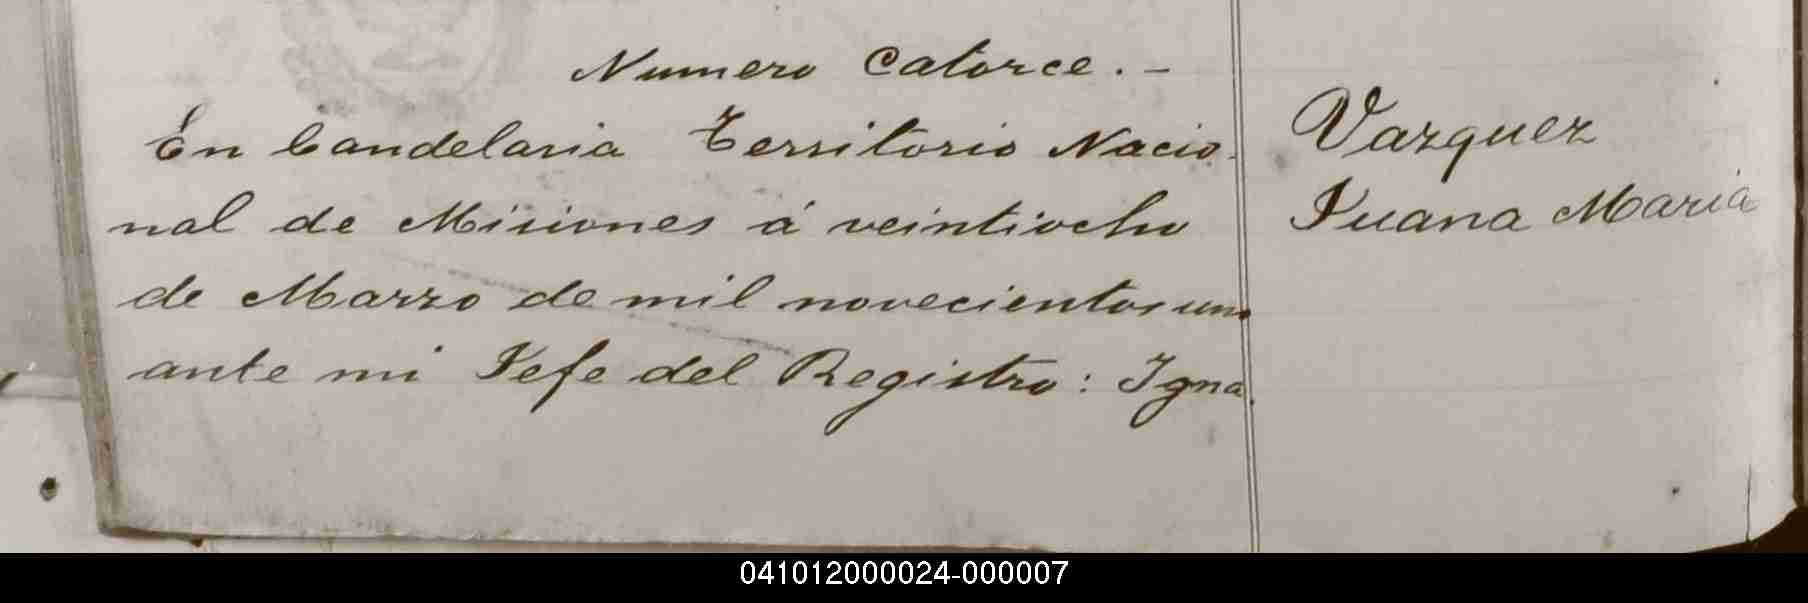 Numero Catorce. -
En Candelaria Territorio Nacio-
nal de Misiones á veintiocho
de Marzo de mil novecientos uno
ante mi Jefe del Registro: Igna-
Vazquez
Juana Maria
041012000024-000007